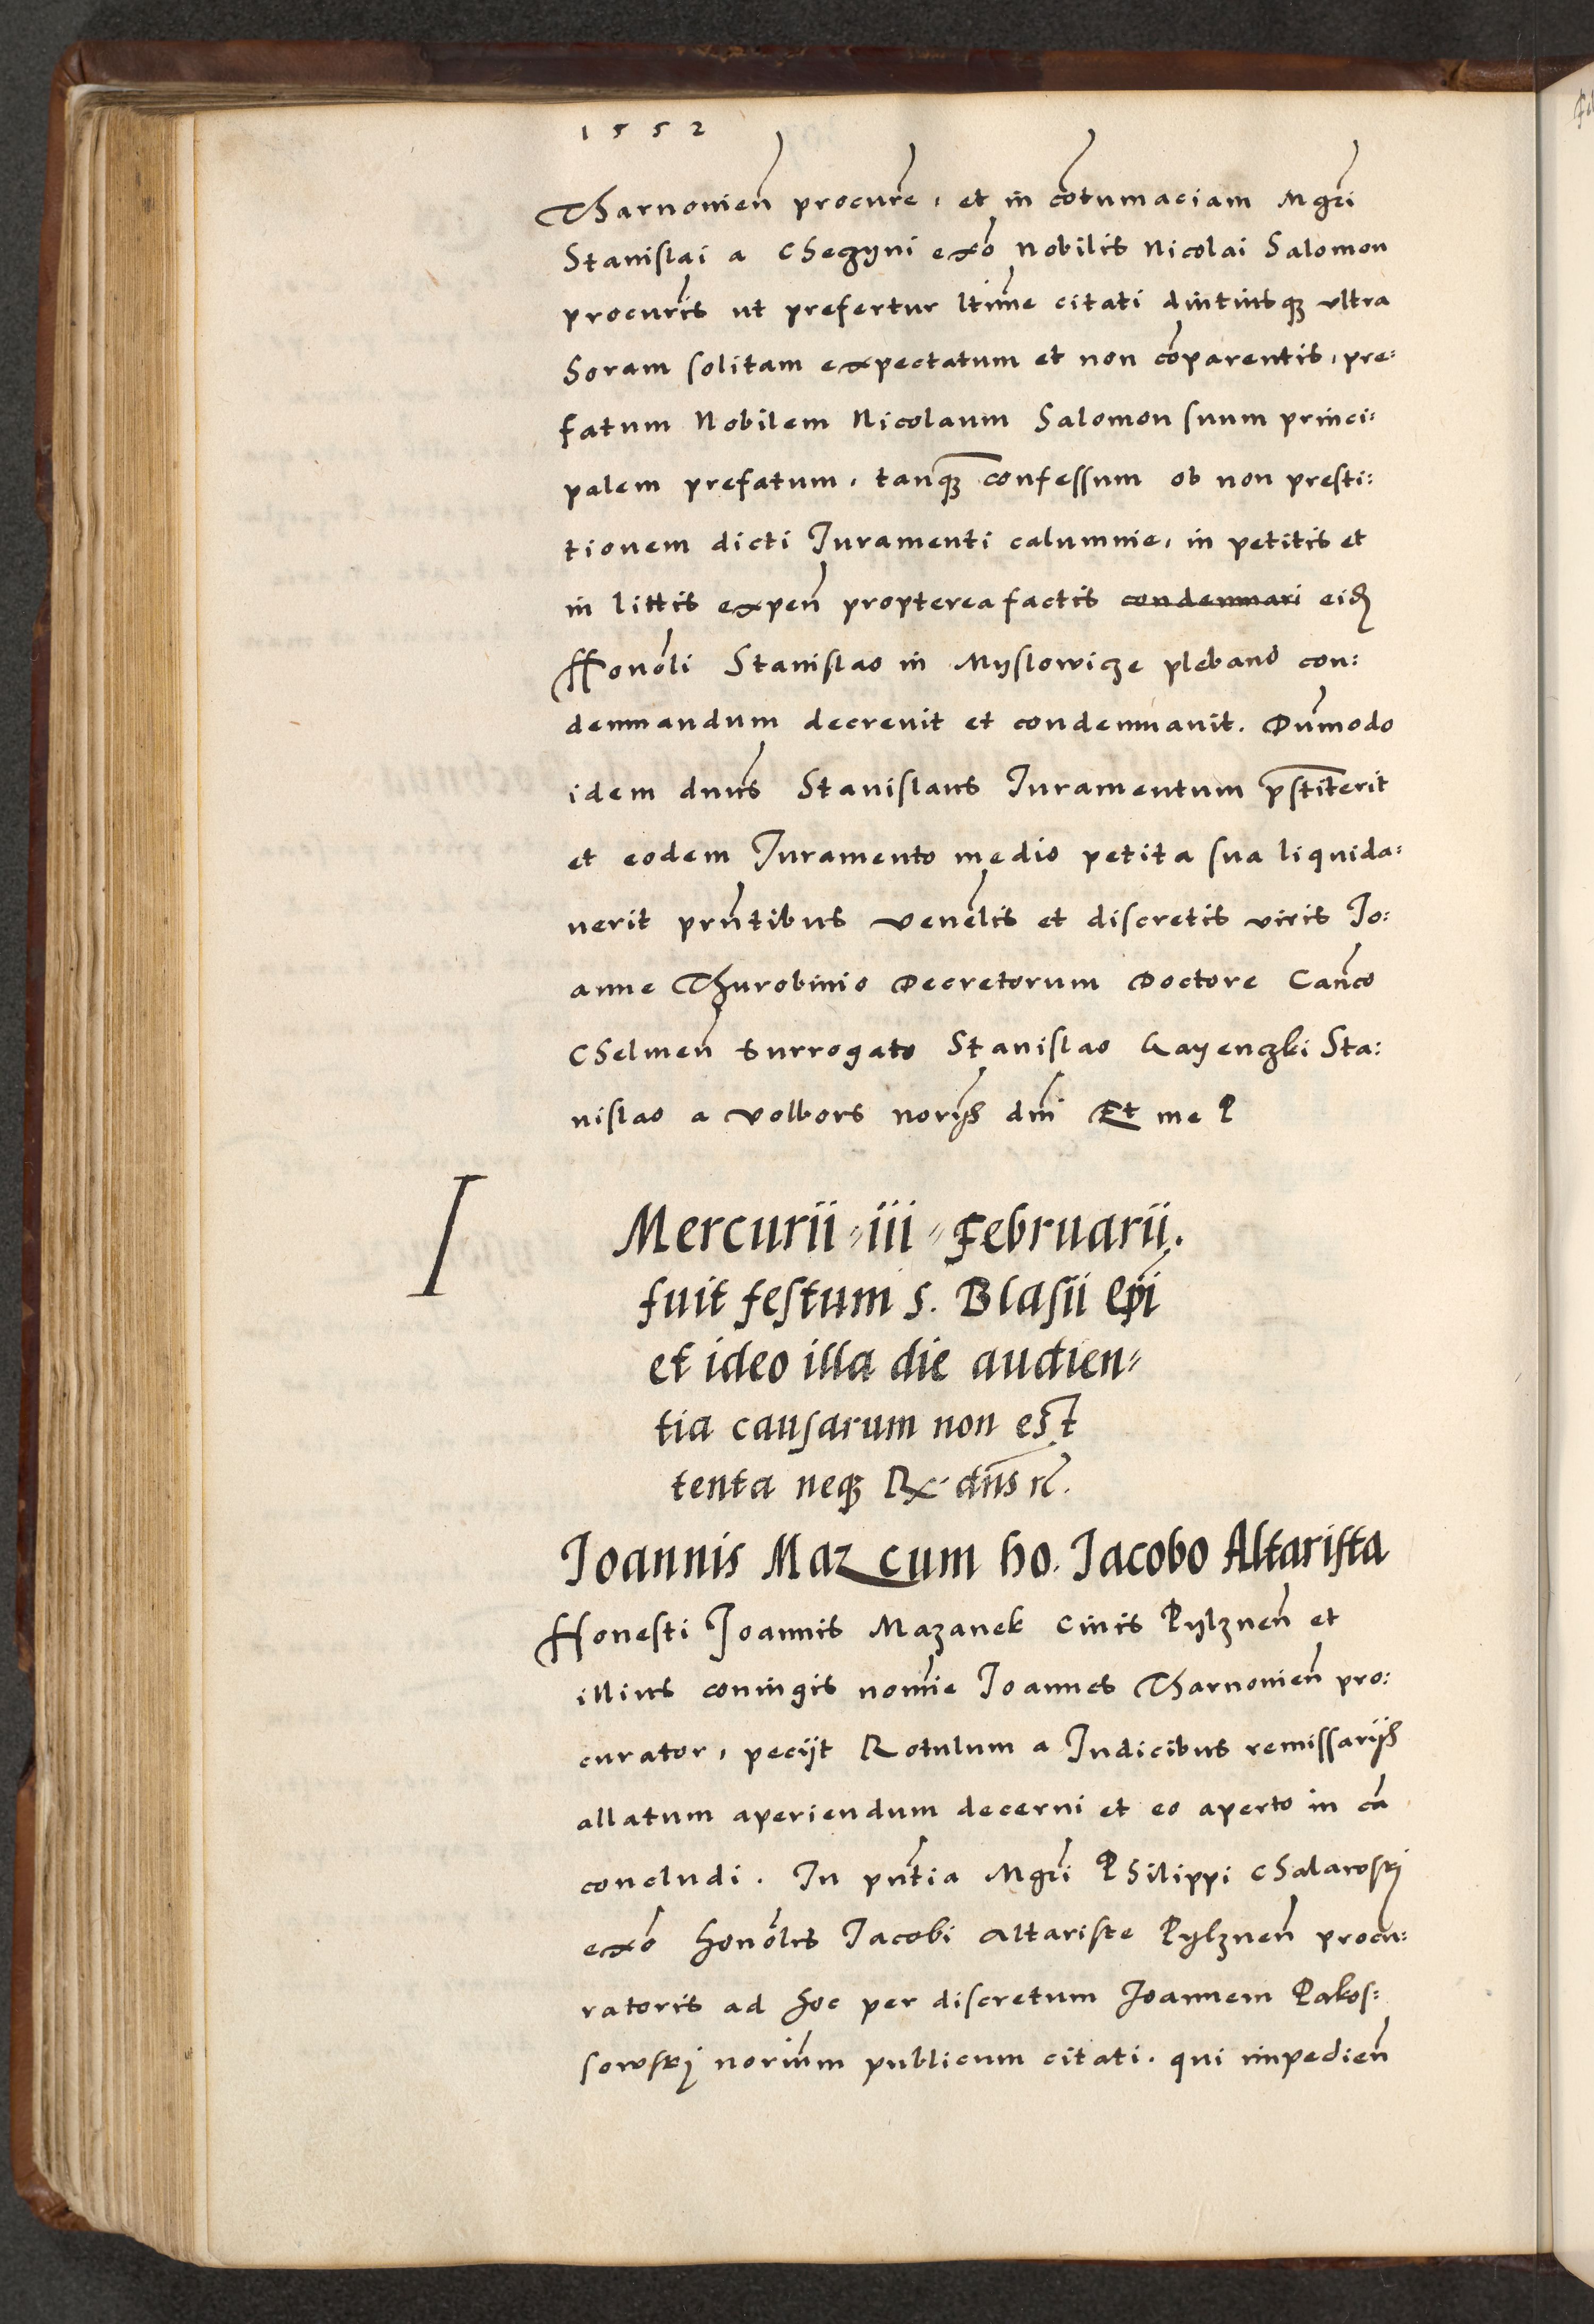 1552
Tharnovien̄ procure͂, et in co͂tumaciam Mgr̃i
Stanislai a Chegyni ex̃o Nobilis Nicolai Salomon
procur̃is ut prefertur ltim̃e citati diutiusqȝ ultra
horam solitam expectatum et non co͂parentis, pre:
fatum Nobilem Nicolaum Salomon suum princi:
palem prefatum, tanqȝ confessum ob non presti:
tionem dicti Juramenti calumnie, in petitis et
in littis expen̄ propterea factis condemnari eid
Honor̃li Stanislao in Myslowicze plebano con:
demnandum decrevit et condemnavit. Dum̃odo
idem dnus̃ Stanislaus Juramentum p̄stiterit
et eodem Juramento medio petita sua liquida:
verit prñtibus venelis̃ et discretis viris Jo:
anne Thurobinio Decretorum Doctore Canc̃o
Chelmen̄ Surrogato Stanislao Gayenczki Sta:
nislao a Volbors norijs̃ dni Et me P
I
Mercurii iii Februarii.
fuit festum s. Blasii Epi
et ideo illa die audien=
tia causarum non est
tenta neqȝ Rx dn̄s rc̃.
Joannis Maz cum ho. Jacobo Altarista
Honesti Joannis Mazanek Civis Pylznen̄ et
illius coniugis nomi͂e Joannes Tharnovien̄ pro:
curator, pecijt Rotulum a Judicibus remissarijs
allatum aperiendum decerni et eo aperto in ca͂
concludi. In pñtia Mgr̃i Philippi Chalawskj
ex̃o honor̃lis Jacobi Altariste Pylznen̄ procu:
ratoris ad hoc per discretum Joannem Pakos:
sowskj norium̃ publicum citati. qui impedien̄